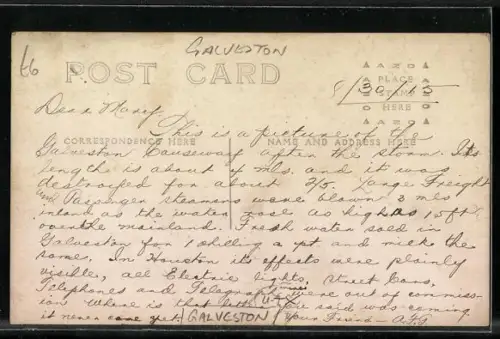 GALVESTON
66
POST CARD
AZO
PLACE
STAMP
HERE
AZO
8/30/15
Dear Mary
CORRESPONDENCE HERE
NAME AND ADDRESS HERE
This is a picture of the
Galveston Causeway after the storm. Its
length is about 4 mls. and it was
destroyed for about 2/5. Large Freight
and Passenger steamers were blown 3 mls
inland as the water rose as high as 15 ft
over the mainland. Fresh water sold in
Galveston for 1 shilling a pt. and milk the
same. In Houston its effects were plainly
visible, all Electric lights, Street Cars,
Telephones and Telegraph lines were out of commiss-
ion. Where is that letter you said was coming
it never came yet. Your Friend - A.F.G.
GALVESTON